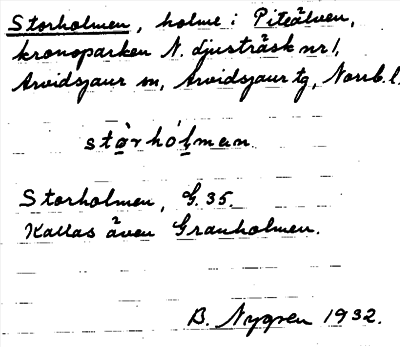 Storholmen, holme i Piteälven,
kronoparken N. djusträsk nr 1,
Arvidsjaur sn, Arvidsjaur tg, Norrb. l.
stòrhólman
Storholmen, G. 35.
Kallas även Granholmen.
B. Nygren 1932.